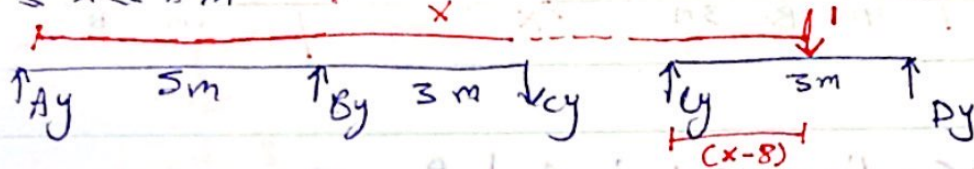 x 1
↑Ay 5m ↑By 3 m ↓Cy ↑Cy 3m ↑ Dy
(x-8)